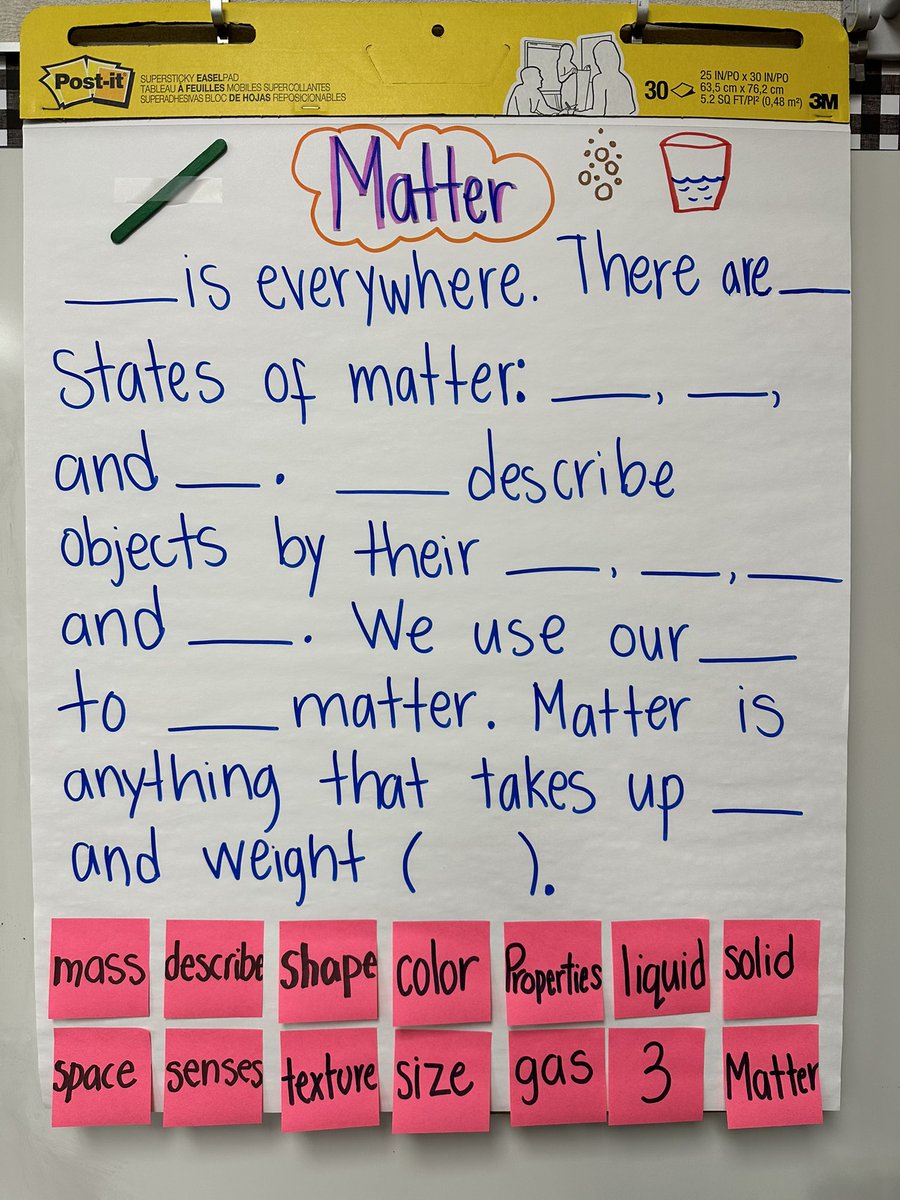 Post-it
SUPERSTICKY EASELPAD
TABLEAU À FEUILLES MOBILES SUPERCOLLANTES
SUPERADHESIVAS BLOC DE HOJAS REPOSICIONABLES
30
25 IN/PO x 30 IN/PO
63,5 cm x 76,2 cm
5.2 SQ FT/PI² (0,48 m²)
3M
Matter
____ is everywhere. There are ____
States of matter: ____, ____,
and ____. ____ describe
objects by their ____, ____, ____
and ____. We use our ____
to ____ matter. Matter is
anything that takes up ____
and weight (   ).
mass describe shape color Properties liquid solid
space senses texture size gas 3 Matter